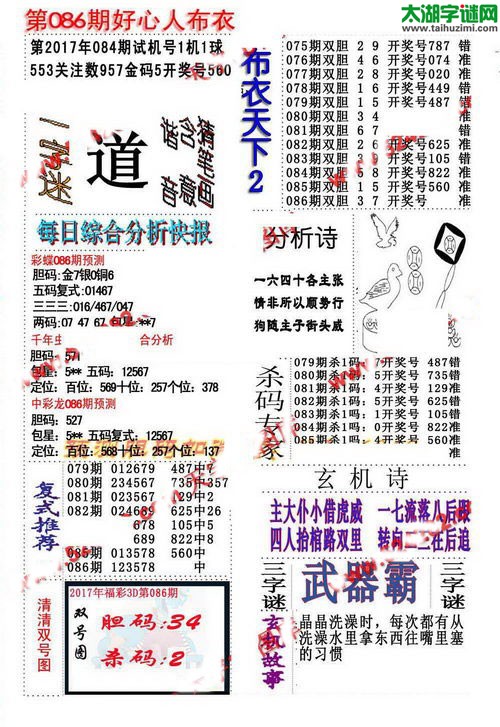 第086期好心人布衣
太湖字谜网
www.taihuzimi.com
第2017年084期试机号1机1球
553关注数957金码5开奖号560
道
每日综合分析快报
彩蝶086期预测
胆码:金7银0铜6
五码复式:01467
三三三:016/467/047
两码:07 47 67
合分析
胆码: 571
包星: 5** 五码: 12567
定位: 百位: 569十位: 257个位: 378
中彩龙086期预测
胆码: 527
包星: 5** 五码复式: 12567
定位: 百位: 568十位: 257个位: 137
复式推荐
079期 012679 487中7
080期 234567 735中357
081期
082期 024689 625中26
678 105中5
689 822中8
085期 013578 560中
086期 123578
清清双号图
2017年福彩3D第086期
双号图
胆码:34
杀码:2
布衣天下2
075期双胆 2 9 开奖号787 错
076期双胆 4 6 开奖号074 准
077期双胆 2 8 开奖号020 准
078期双胆 1 6 开奖号449 错
079期双胆 1 5 开奖号487 错
080期双胆 3 4
081期双胆 6 7
082期双胆 开奖号625 准
083期双胆 开奖号105 错
084期双胆 开奖号822 准
085期双胆 1 5 开奖号560 准
086期双胆 3 7 开奖号
分析诗
一六四十各主张
情非所以顺势行
狗随主子街头威
杀码专家
079期杀1码: 7开奖号 487错
080期杀1码: 5开奖号 735错
081期杀1码: 4开奖号 129准
082期杀1吗: 1开奖号 625准
083期杀1吗: 1开奖号 105错
084期杀1吗: 0开奖号 822准
085期杀1吗: 4开奖号 560准
玄机诗
主大仆小借虎威
一七流落八后跟
四人抬棺路双里
转向二三在后追
三字谜
武器霸
三字谜
玄机故事
晶晶洗澡时，每次都有从
洗澡水里拿东西往嘴里塞
的习惯